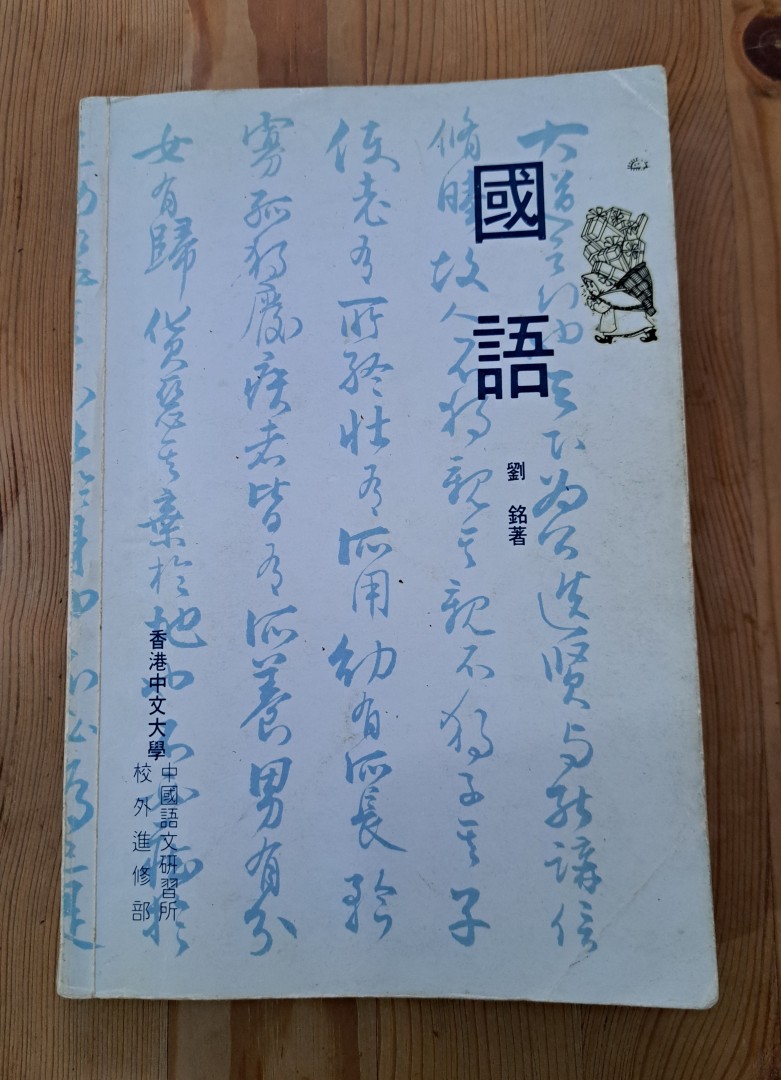 國語
劉銘著
大道之行也天下為公選賢与能講信
脩睦故人不獨親其親不獨子其子
使老有所終壯有所用幼有所長矜
寡孤獨廢疾者皆有所養男有分
女有歸貨惡其棄於地也不必藏於
香港中文大學
中國語文研習所
校外進修部